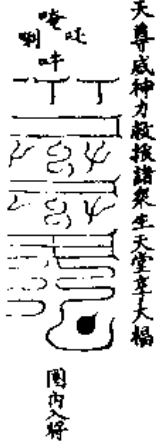 天尊威神力救援諸衆生天堂享大福
唵
唎
吽
圈内入將